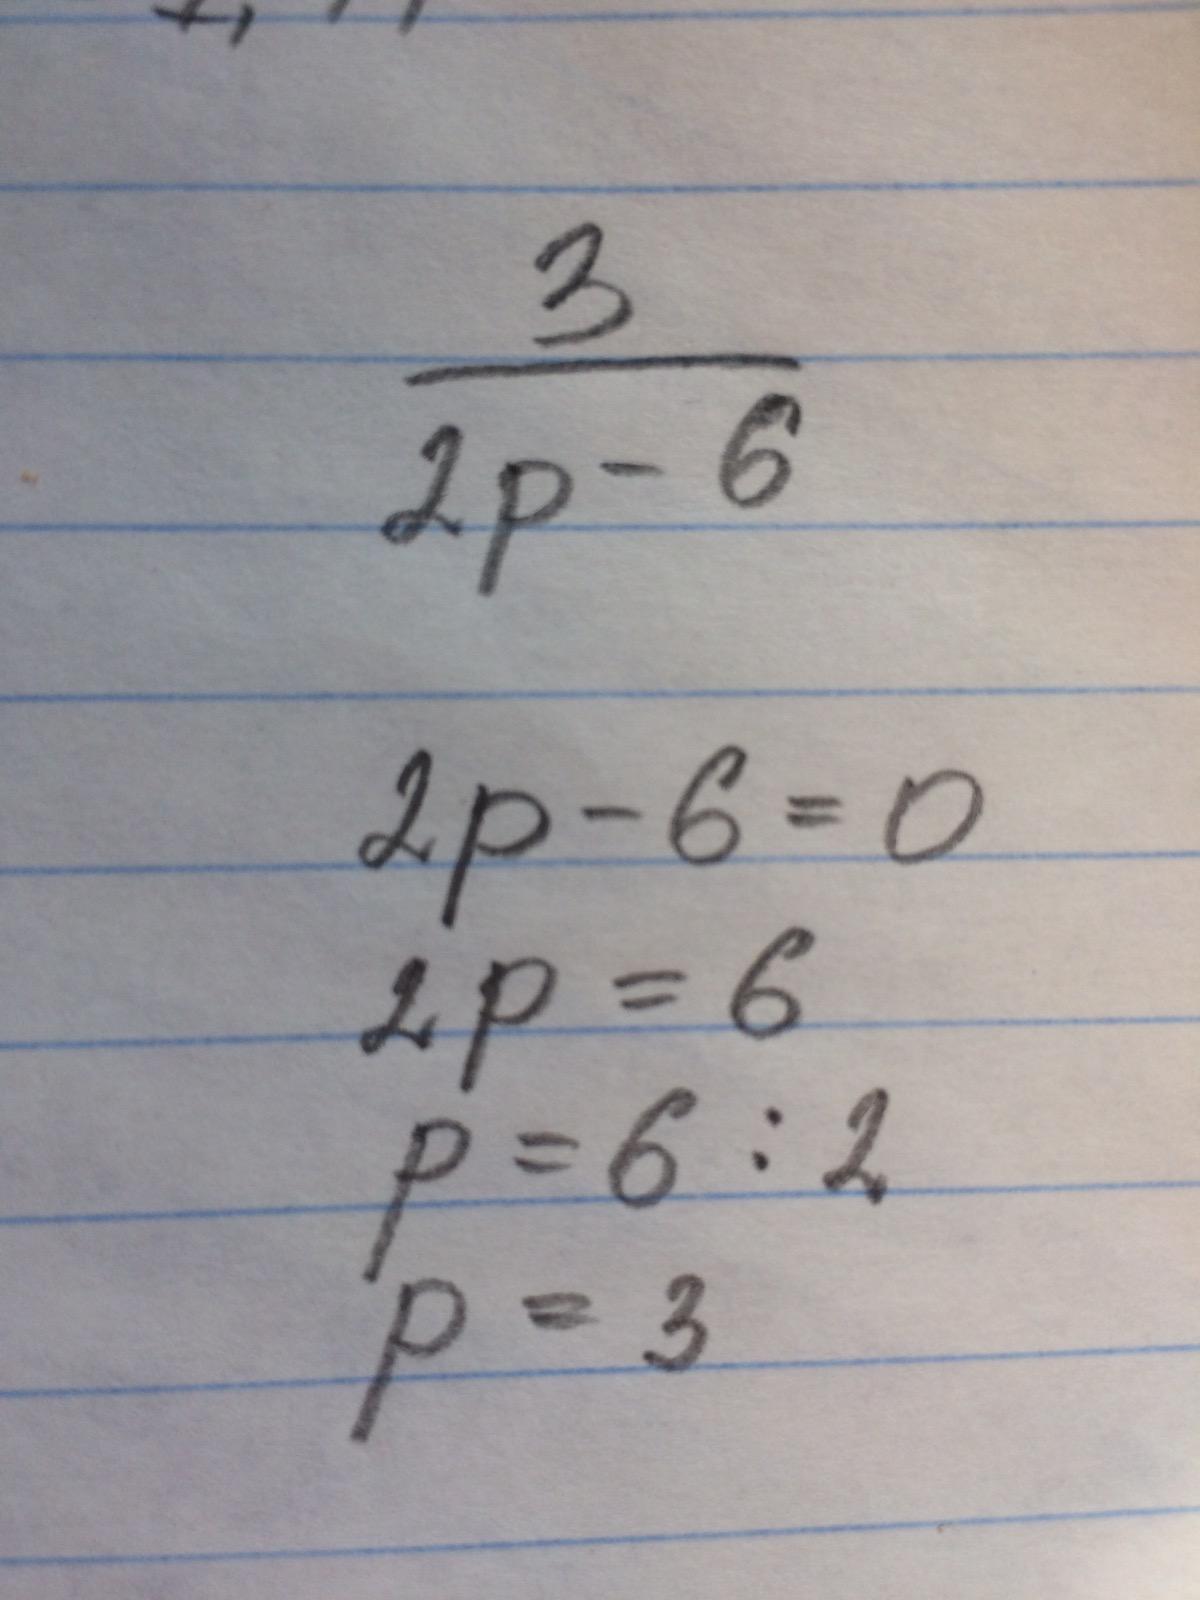 3
2p - 6
2p - 6 = 0
2p = 6
p = 6 : 2
p = 3